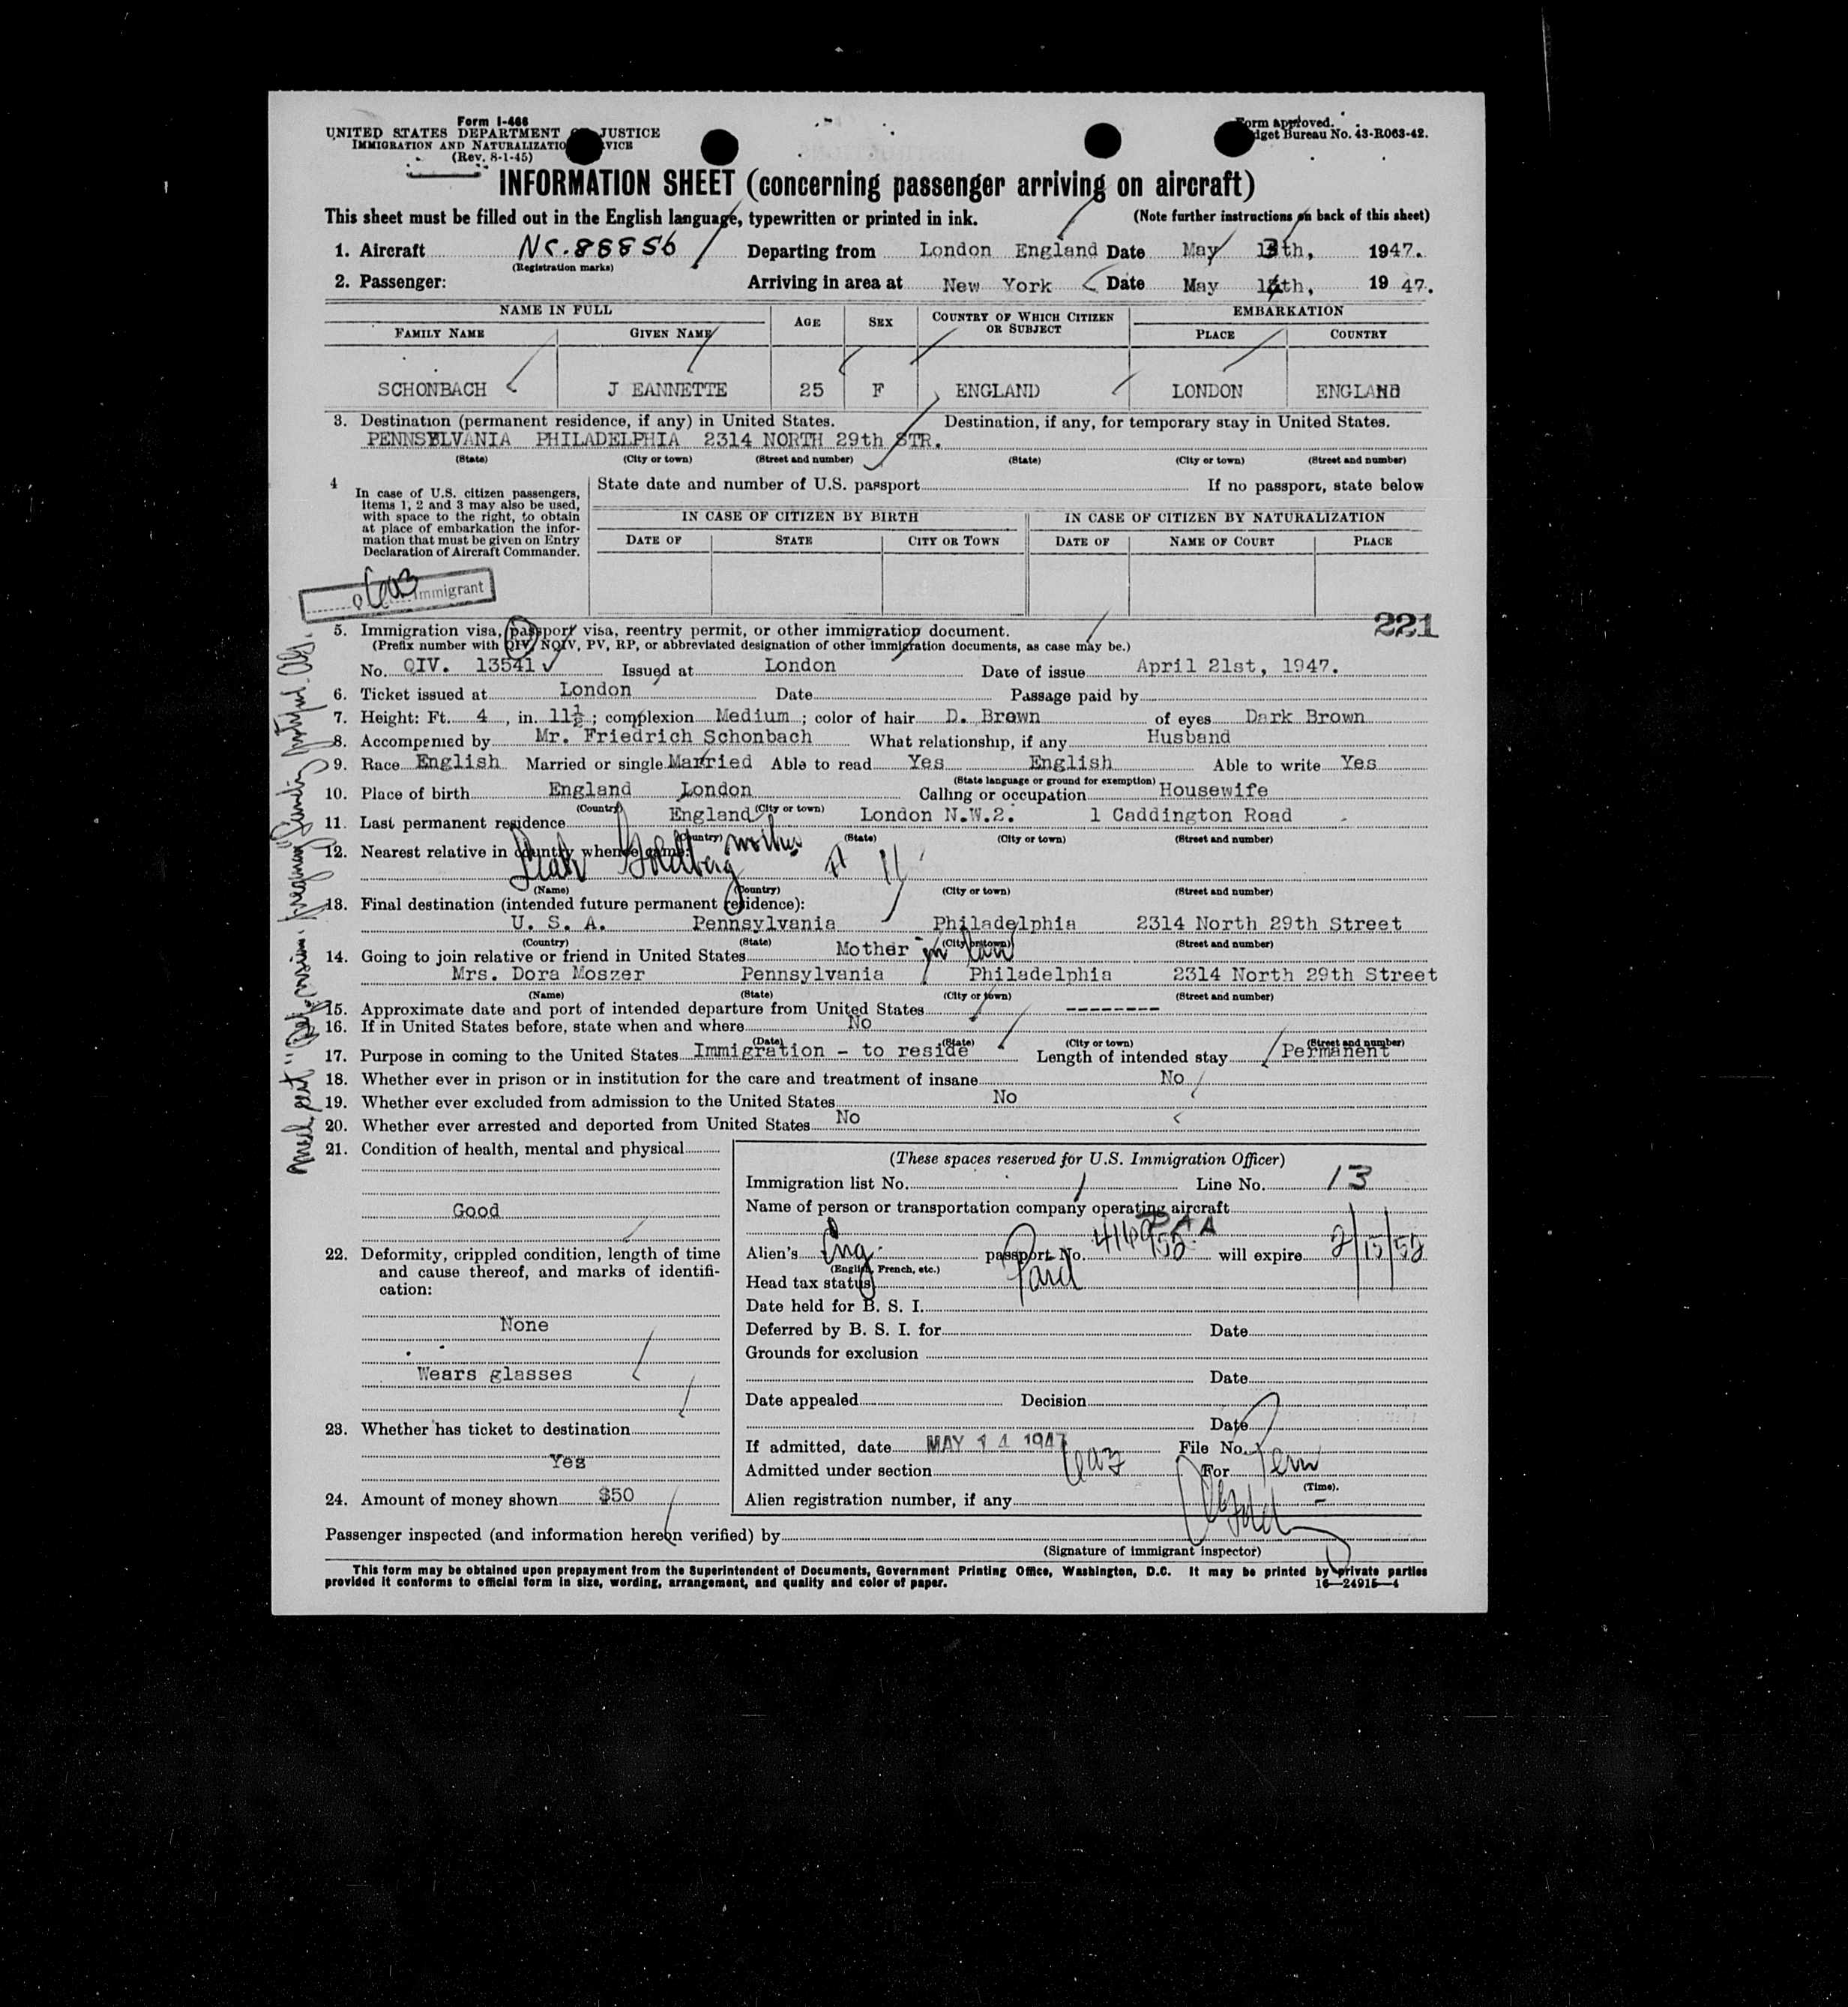 Form I-466
UNITED STATES DEPARTMENT OF JUSTICE
IMMIGRATION AND NATURALIZATION SERVICE
(Rev. 8-1-45)
Form approved.
Budget Bureau No. 43-R063-42.
INFORMATION SHEET (concerning passenger arriving on aircraft)
This sheet must be filled out in the English language, typewritten or printed in ink. (Note further instructions on back of this sheet)
1. Aircraft NC.88856 Departing from London England Date May 13th, 1947.
(Registration marks)
2. Passenger: Arriving in area at New York Date May 14th, 19 47.
NAME IN FULL AGE SEX COUNTRY OF WHICH CITIZEN OR SUBJECT EMBARKATION
FAMILY NAME GIVEN NAME PLACE COUNTRY
SCHONBACH J EANNETTE 25 F ENGLAND LONDON ENGLAND
3. Destination (permanent residence, if any) in United States. Destination, if any, for temporary stay in United States.
PENNSYLVANIA PHILADELPHIA 2314 NORTH 29th STR.
(State) (City or town) (Street and number) (State) (City or town) (Street and number)
4 In case of U.S. citizen passengers, items 1, 2 and 3 may also be used, with space to the right, to obtain at place of embarkation the information that must be given on Entry Declaration of Aircraft Commander.
State date and number of U.S. passport If no passport, state below
IN CASE OF CITIZEN BY BIRTH IN CASE OF CITIZEN BY NATURALIZATION
DATE OF STATE CITY OR TOWN DATE OF NAME OF COURT PLACE
Q 6a3 Immigrant
221
5. Immigration visa, passport visa, reentry permit, or other immigration document.
(Prefix number with QIV, NQIV, PV, RP, or abbreviated designation of other immigration documents, as case may be.)
No. QIV. 13541 Issued at London Date of issue April 21st, 1947.
6. Ticket issued at London Date Passage paid by
7. Height: Ft. 4, in. 11½; complexion Medium; color of hair D. Brown of eyes Dark Brown
8. Accompanied by Mr. Friedrich Schonbach What relationship, if any Husband
9. Race English Married or single Married Able to read Yes English Able to write Yes
(State language or ground for exemption)
10. Place of birth England London Calling or occupation Housewife
(Country) (City or town)
11. Last permanent residence England London N.W.2. 1 Caddington Road
(Country) (State) (City or town) (Street and number)
12. Nearest relative in country whence came: mother
Leah Goldberg # 11
(Name) (Country) (City or town) (Street and number)
13. Final destination (intended future permanent residence):
U. S. A. Pennsylvania Philadelphia 2314 North 29th Street
(Country) (State) (City or town) (Street and number)
14. Going to join relative or friend in United States Mother - in law
Mrs. Dora Moszer Pennsylvania Philadelphia 2314 North 29th Street
(Name) (State) (City or town) (Street and number)
15. Approximate date and port of intended departure from United States --------
16. If in United States before, state when and where No
(Date) (State) (City or town) (Street and number)
17. Purpose in coming to the United States Immigration - to reside Length of intended stay Permanent
18. Whether ever in prison or in institution for the care and treatment of insane No
19. Whether ever excluded from admission to the United States No
20. Whether ever arrested and deported from United States No
21. Condition of health, mental and physical
Good
22. Deformity, crippled condition, length of time and cause thereof, and marks of identification:
None
Wears glasses
23. Whether has ticket to destination
Yes
24. Amount of money shown $50
(These spaces reserved for U.S. Immigration Officer)
Immigration list No. 1 Line No. 13
Name of person or transportation company operating aircraft
PAA
Alien's Eng. passport No. will expire 2/15/52
(English, French, etc.)
Head tax status Paid
Date held for B. S. I.
Deferred by B. S. I. for Date
Grounds for exclusion
Date
Date appealed Decision
Date
If admitted, date MAY 14 1947 File No.
Admitted under section 6a3 For Perm
(Time).
Alien registration number, if any
Passenger inspected (and information hereon verified) by
(Signature of immigrant inspector)
This form may be obtained upon prepayment from the Superintendent of Documents, Government Printing Office, Washington, D.C. It may be printed by private parties
provided it conforms to official form in size, wording, arrangement, and quality and color of paper. 16—24915-4